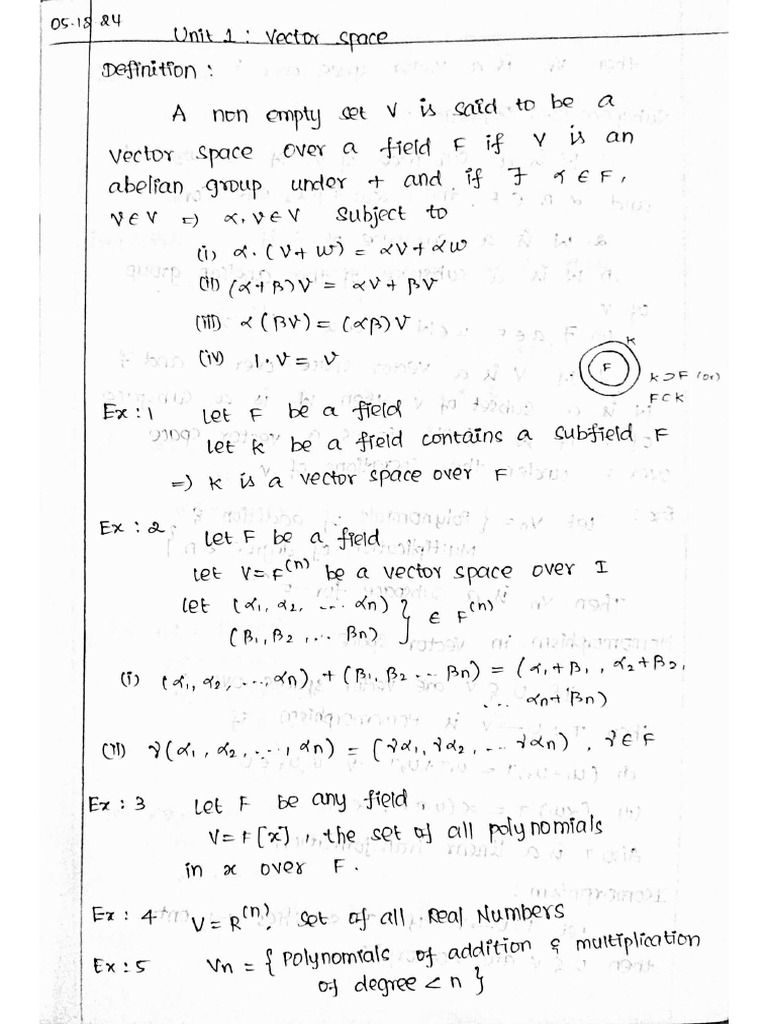 05.12.24
Unit 1 : Vector space
Definition :
A non empty set V is said to be a
vector space over a field F if V is an
abelian group under + and if ∃ α ∈ F,
v ∈ V ⇒ α.v ∈ V subject to
(i) α.(v+w) = αv+αw
(ii) (α+β)v = αv+βv
(iii) α(βv) = (αβ)v
(iv) 1.v = v
K
F
K⊃F (or)
F⊂K
Ex : 1 Let F be a field
Let K be a field contains a subfield F
⇒ K is a vector space over F
Ex : 2 Let F be a field
Let V=F⁽ⁿ⁾ be a vector space over I
Let (α₁, α₂, ... αn)
(β₁, β₂, ... βn) } ∈ F⁽ⁿ⁾
(i) (α₁, α₂, ... αn) + (β₁, β₂ ... βn) = (α₁+β₁, α₂+β₂,
... αn+βn)
(ii) γ(α₁, α₂, ..., αn) = (γα₁, γα₂, ... γαn), γ∈F
Ex : 3 Let F be any field
V=F[x], the set of all polynomials
in x over F.
Ex : 4 V=R⁽ⁿ⁾, set of all Real Numbers
Ex : 5 Vn = { Polynomials of addition & multiplication
of degree < n }